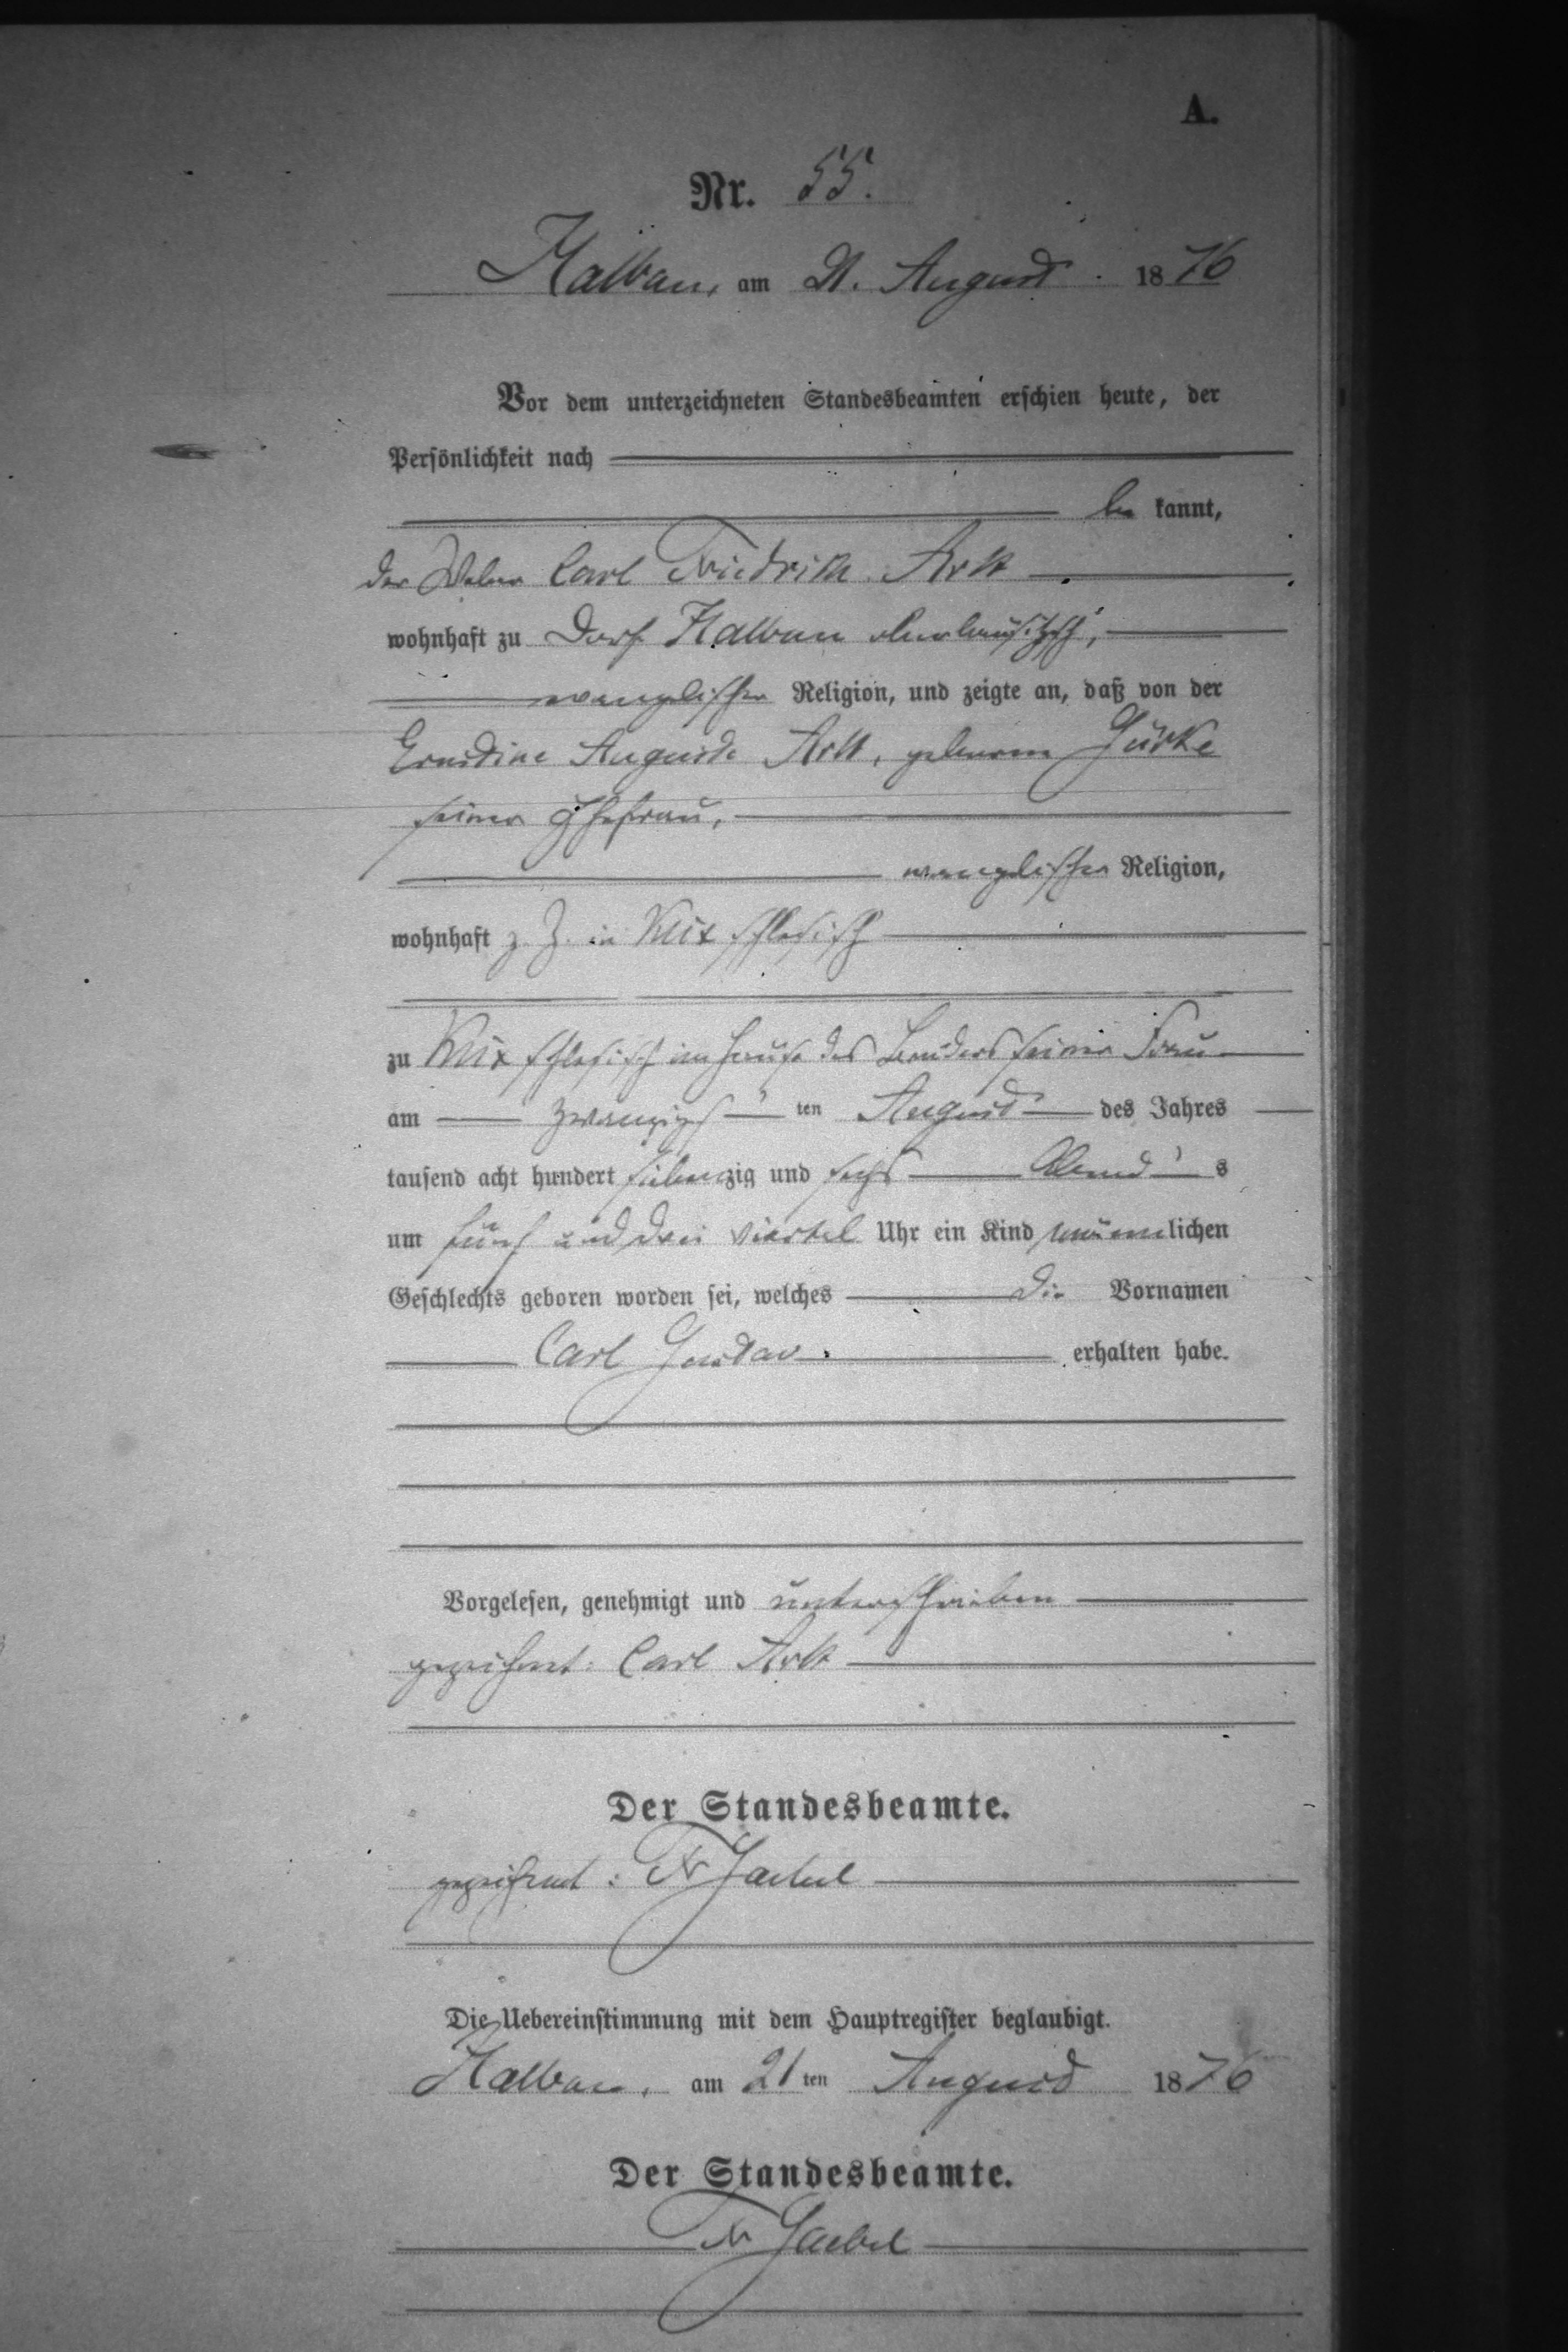 A.
Nr. 55.
Halbau, am 21. August 1876
Vor dem unterzeichneten Standesbeamten erschien heute, der
Persönlichkeit nach
be kannt,
der Weber Carl Friedrich Arlt
wohnhaft zu Dorf Halbau oberlausitzsch,
evangelischer Religion, und zeigte an, daß von der
Ernestine Auguste Arlt, geborene Gürke
seiner Ehefrau,
evangelischer Religion,
wohnhaft z. Z. in Klix schlesisch
zu Klix schlesisch im Hause des Bruders seiner Frau
am zwanzigs ten August des Jahres
tausend acht hundert siebenzig und sechs Abend s
um fünf und drei viertel Uhr ein Kind männlichen
Geschlechts geboren worden sei, welches die Vornamen
Carl Gustav erhalten habe.
Vorgelesen, genehmigt und unterschrieben
gezeichnet: Carl Arlt
Der Standesbeamte.
gezeichnet: Fr Gaebel
Die Uebereinstimmung mit dem Hauptregister beglaubigt.
Halbau, am 21 ten August 1876
Der Standesbeamte.
Fr Gaebel